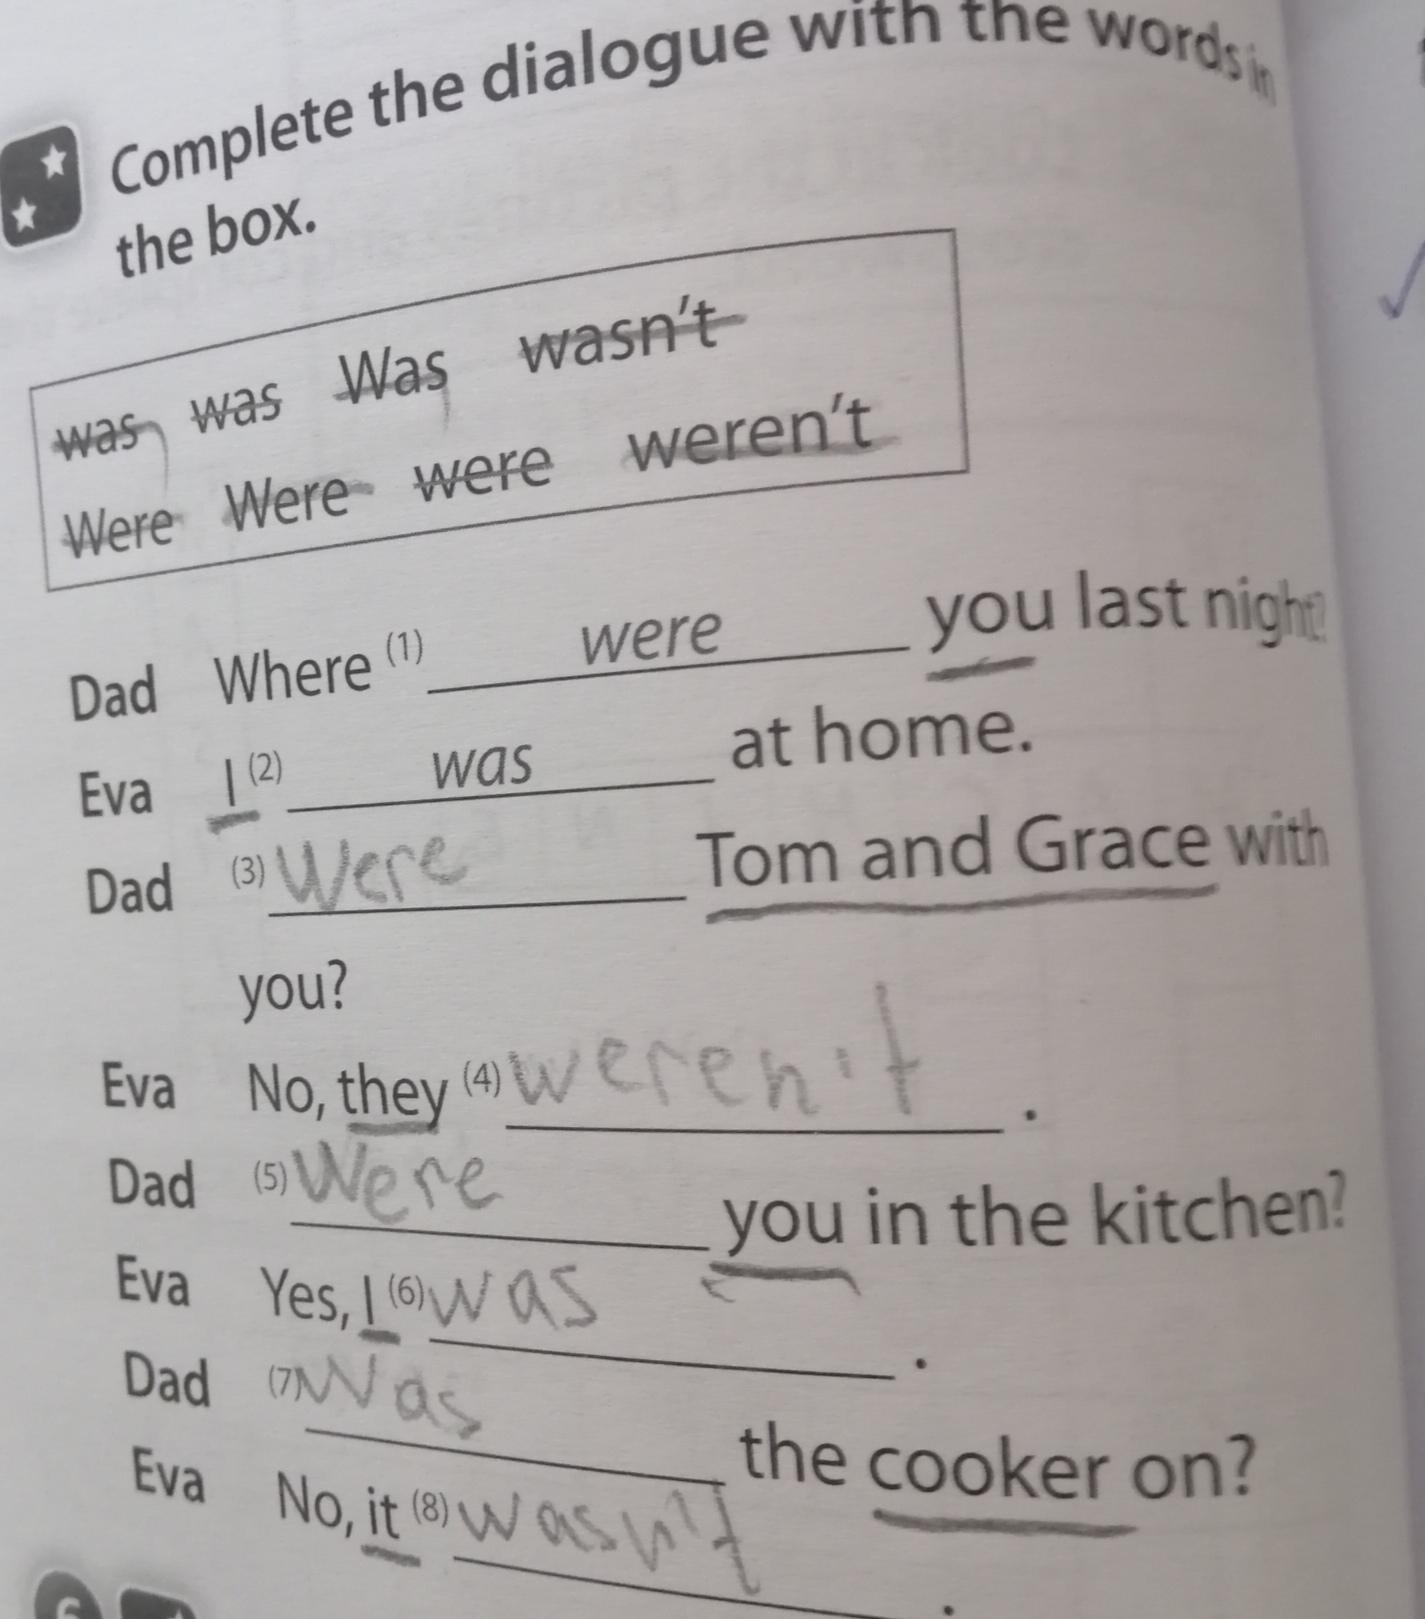 Complete the dialogue with the words in
the box.
was was Was wasn't
Were Were were weren't
Dad Where (1) were you last night?
Eva I (2) was at home.
Dad (3) Were Tom and Grace with
you?
Eva No, they (4) weren't .
Dad (5) Were you in the kitchen?
Eva Yes, I (6) was .
Dad (7) Was the cooker on?
Eva No, it (8) wasn't .